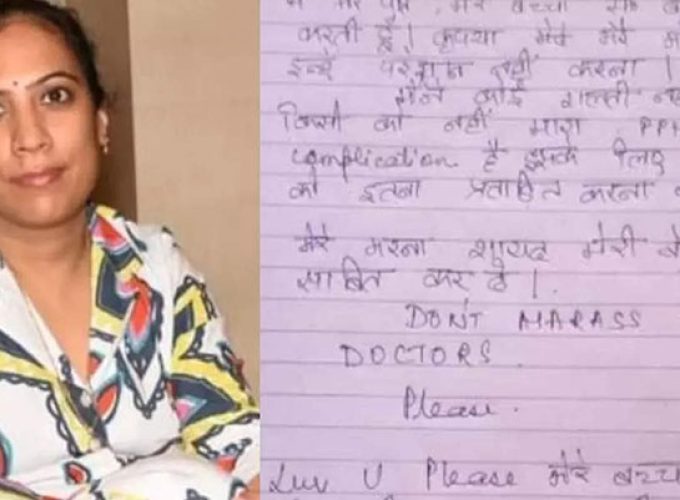 मेरे बच्चा
करती हूँ। कृपया मेरे मेरे
इन्हें परेशान नहीं करना।
मैंने कोई गलती
किसी को नहीं मारा PPH
complication है इसके लिए
को इतना प्रताड़ित करना
मेरे मरना शायद मेरी
साबित कर दे।
DON'T HARASS
DOCTORS.
Please.
Luv U Please मेरे बच्च